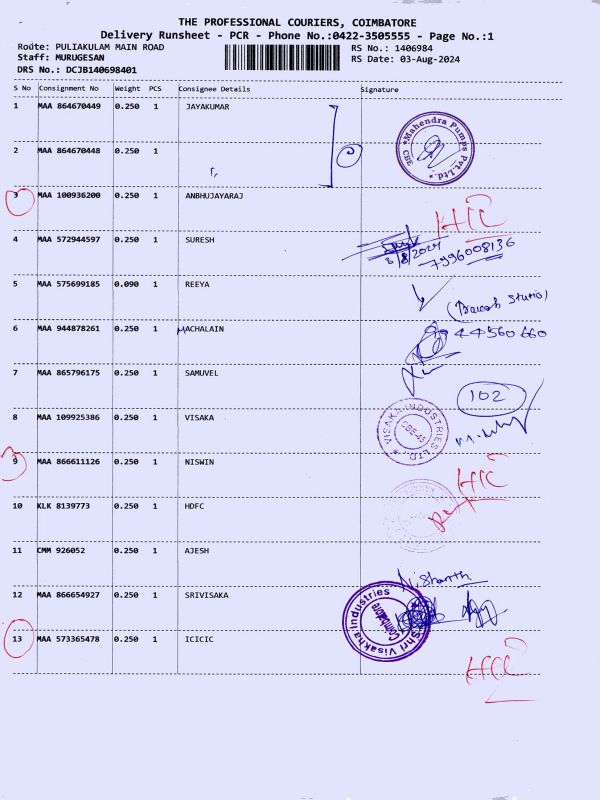 THE PROFESSIONAL COURIERS, COIMBATORE
Delivery Runsheet - PCR - Phone No.:0422-3505555 - Page No.:1
Route: PULIAKULAM MAIN ROAD RS No.: 1406984
Staff: MURUGESAN RS Date: 03-Aug-2024
DRS No.: DCJB140698401
S No Consignment No Weight PCS Consignee Details Signature
1 MAA 864670449 0.250 1 JAYAKUMAR
*Mahendra Pumps Pvt.Ltd.* CBE
2 MAA 864670448 0.250 1
3 MAA 100936200 0.250 1 ANBHUJAYARAJ
4 MAA 572944597 0.250 1 SURESH
3/8/2024
7996008136
5 MAA 575699185 0.090 1 REEYA
6 MAA 944878261 0.250 1 MACHALAIN
7 MAA 865796175 0.250 1 SAMUVEL
102
8 MAA 109925386 0.250 1 VISAKA
* VISAKA INDUSTRIES LTD. * CBE-45
9 MAA 866611126 0.250 1 NISWIN
10 KLK 8139773 0.250 1 HDFC
11 CMM 926052 0.250 1 AJESH
12 MAA 866654927 0.250 1 SRIVISAKA
Shri Visakha Industries Coimbatore
13 MAA 573365478 0.250 1 ICICIC